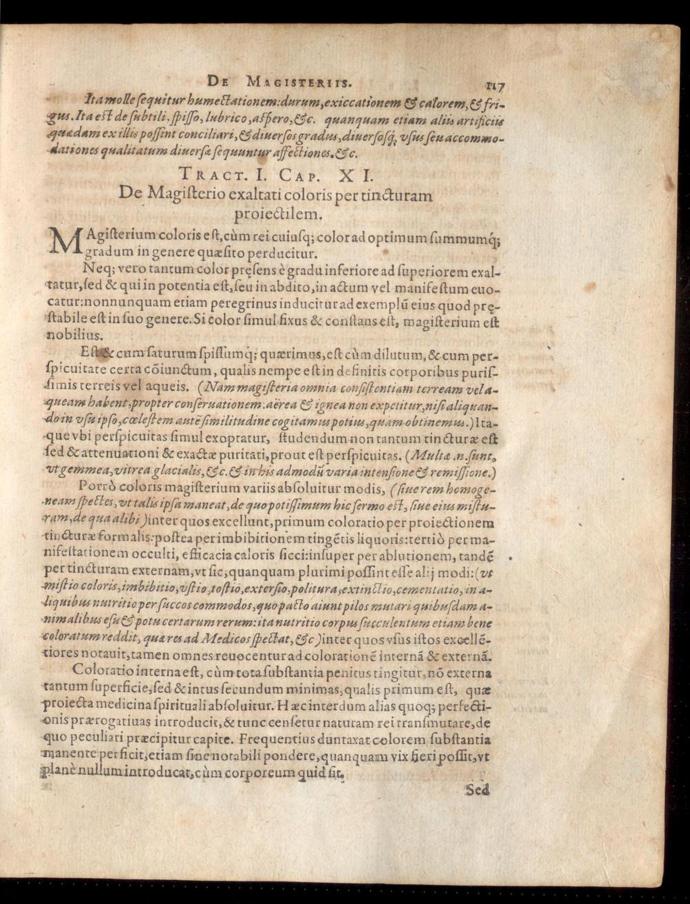 DE MAGISTERIIS. 117
Ita molle sequitur humectationem: durum, exiccationem & calorem, & fri-
gus. Ita est de subtili, spisso, lubrico, aspero, &c. quanquam etiam aliis artificiis
quædam ex illis possint conciliari, & diuersos gradus, diuersosq; vsus seu accommo-
dationes qualitatum diuersæ sequuntur affectiones. &c.
TRACT. I. CAP. XI.
De Magisterio exaltati coloris per tincturam
proiectilem.
MAgisterium coloris est, cùm rei cuiusq; color ad optimum summumq́;
gradum in genere quæsito perducitur.
Neq; vero tantum color pręsens è gradu inferiore ad superiorem exal-
tatur, sed & qui in potentia est, seu in abdito, in actum vel manifestum euo-
catur: nonnunquam etiam peregrinus inducitur ad exemplũ eius quod prę-
stabile est in suo genere. Si color simul fixus & constans est, magisterium est
nobilius.
Est & cum saturum spissumq́; quærimus, est cùm dilutum, & cum per-
spicuitate certa cõiunctum, qualis nempe est in definitis corporibus puris-
simis terreis vel aqueis. (Nam magisteria omnia consistentiam terream vel a-
queam habent, propter conseruationem: aërea & ignea non expetitur, nisi aliquan-
do in vsu ipso, cœlestem autē similitudine cogitamus potius, quam obtinemus.) Ita-
que vbi perspicuitas simul exoptatur, studendum non tantum tincturæ est
sed & attenuationi & exactæ puritati, prout est perspicuitas. (Multæ .n. sunt,
vt gemmea, vitrea glacialis, &c. & in his admodũ varia intensione & remissione.)
Porrò coloris magisterium variis absoluitur modis, (siue rem homoge-
neam spectes, vt talis ipsa maneat, de quo potissimum hic sermo est, siue eius mistu-
ram, de qua alibi) inter quos excellunt, primum coloratio per proiectionem
tincturæ formalis: postea per imbibitionem tingētis liquoris: tertiò per ma-
nifestationem occulti, efficacia caloris sicci: insuper per ablutionem, tandē
per tincturam externam, vt sic, quanquam plurimi possint esse alij modi: (vt
mistio coloris, imbibitio, vstio, tostio, extersio, politura, extinctio, cementatio, in a-
liquibus nutritio per succos commodos, quo pacto aiunt pilos mutari quibusdam a-
nimalibus esu & potu certarum rerum: ita nutritio corpus succulentum etiam bene
coloratum reddit, quæ res ad Medicos spectat, &c) inter quos vsus istos excellē-
tiores notauit, tamen omnes reuocentur ad colorationē internã & externã.
Coloratio interna est, cùm tota substantia penitus tingitur, nõ externa
tantum superficie, sed & intus secundum minimas, qualis primum est, quæ
proiecta medicina spirituali absoluitur. Hæc interdum alias quoq; perfecti-
onis prærogatiuas introducit, & tunc censetur naturam rei transmutare, de
quo peculiari præcipitur capite. Frequentius duntaxat colorem substantia
manente perficit, etiam sine notabili pondere, quanquam vix fieri possit, vt
planè nullum introducat, cùm corporeum quid sit.
Sed